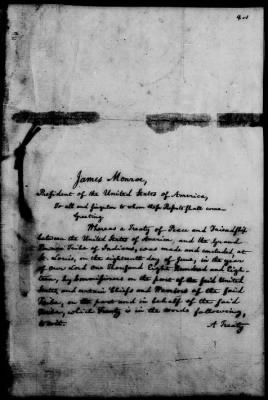 James Monroe,
President of the United States of America,
To all and singular to whom these Presents shall come
Greeting
Whereas a Treaty of Peace and Friendship
between the United States of America, and the Grand
Pawnee Tribe of Indians, was made and concluded, at
St. Louis, on the eighteenth day of June, in the year
of our Lord one Thousand Eight Hundred and Eigh-
teen, by Commissioners on the part of the said United
States, and certain Chiefs and Warriors of the said
Tribe, on the part and in behalf of the said
Tribe, which Treaty is in the words following,
to wit.
A Treaty